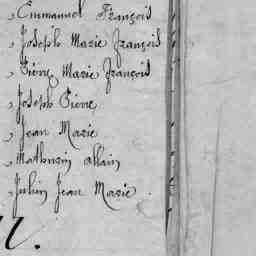 , Emmanuel François
, Joseph Marie François
, Pierre Marie François
, Joseph Pierre
, Jean Marie
, Mathurin allain
, Julien Jean Marie